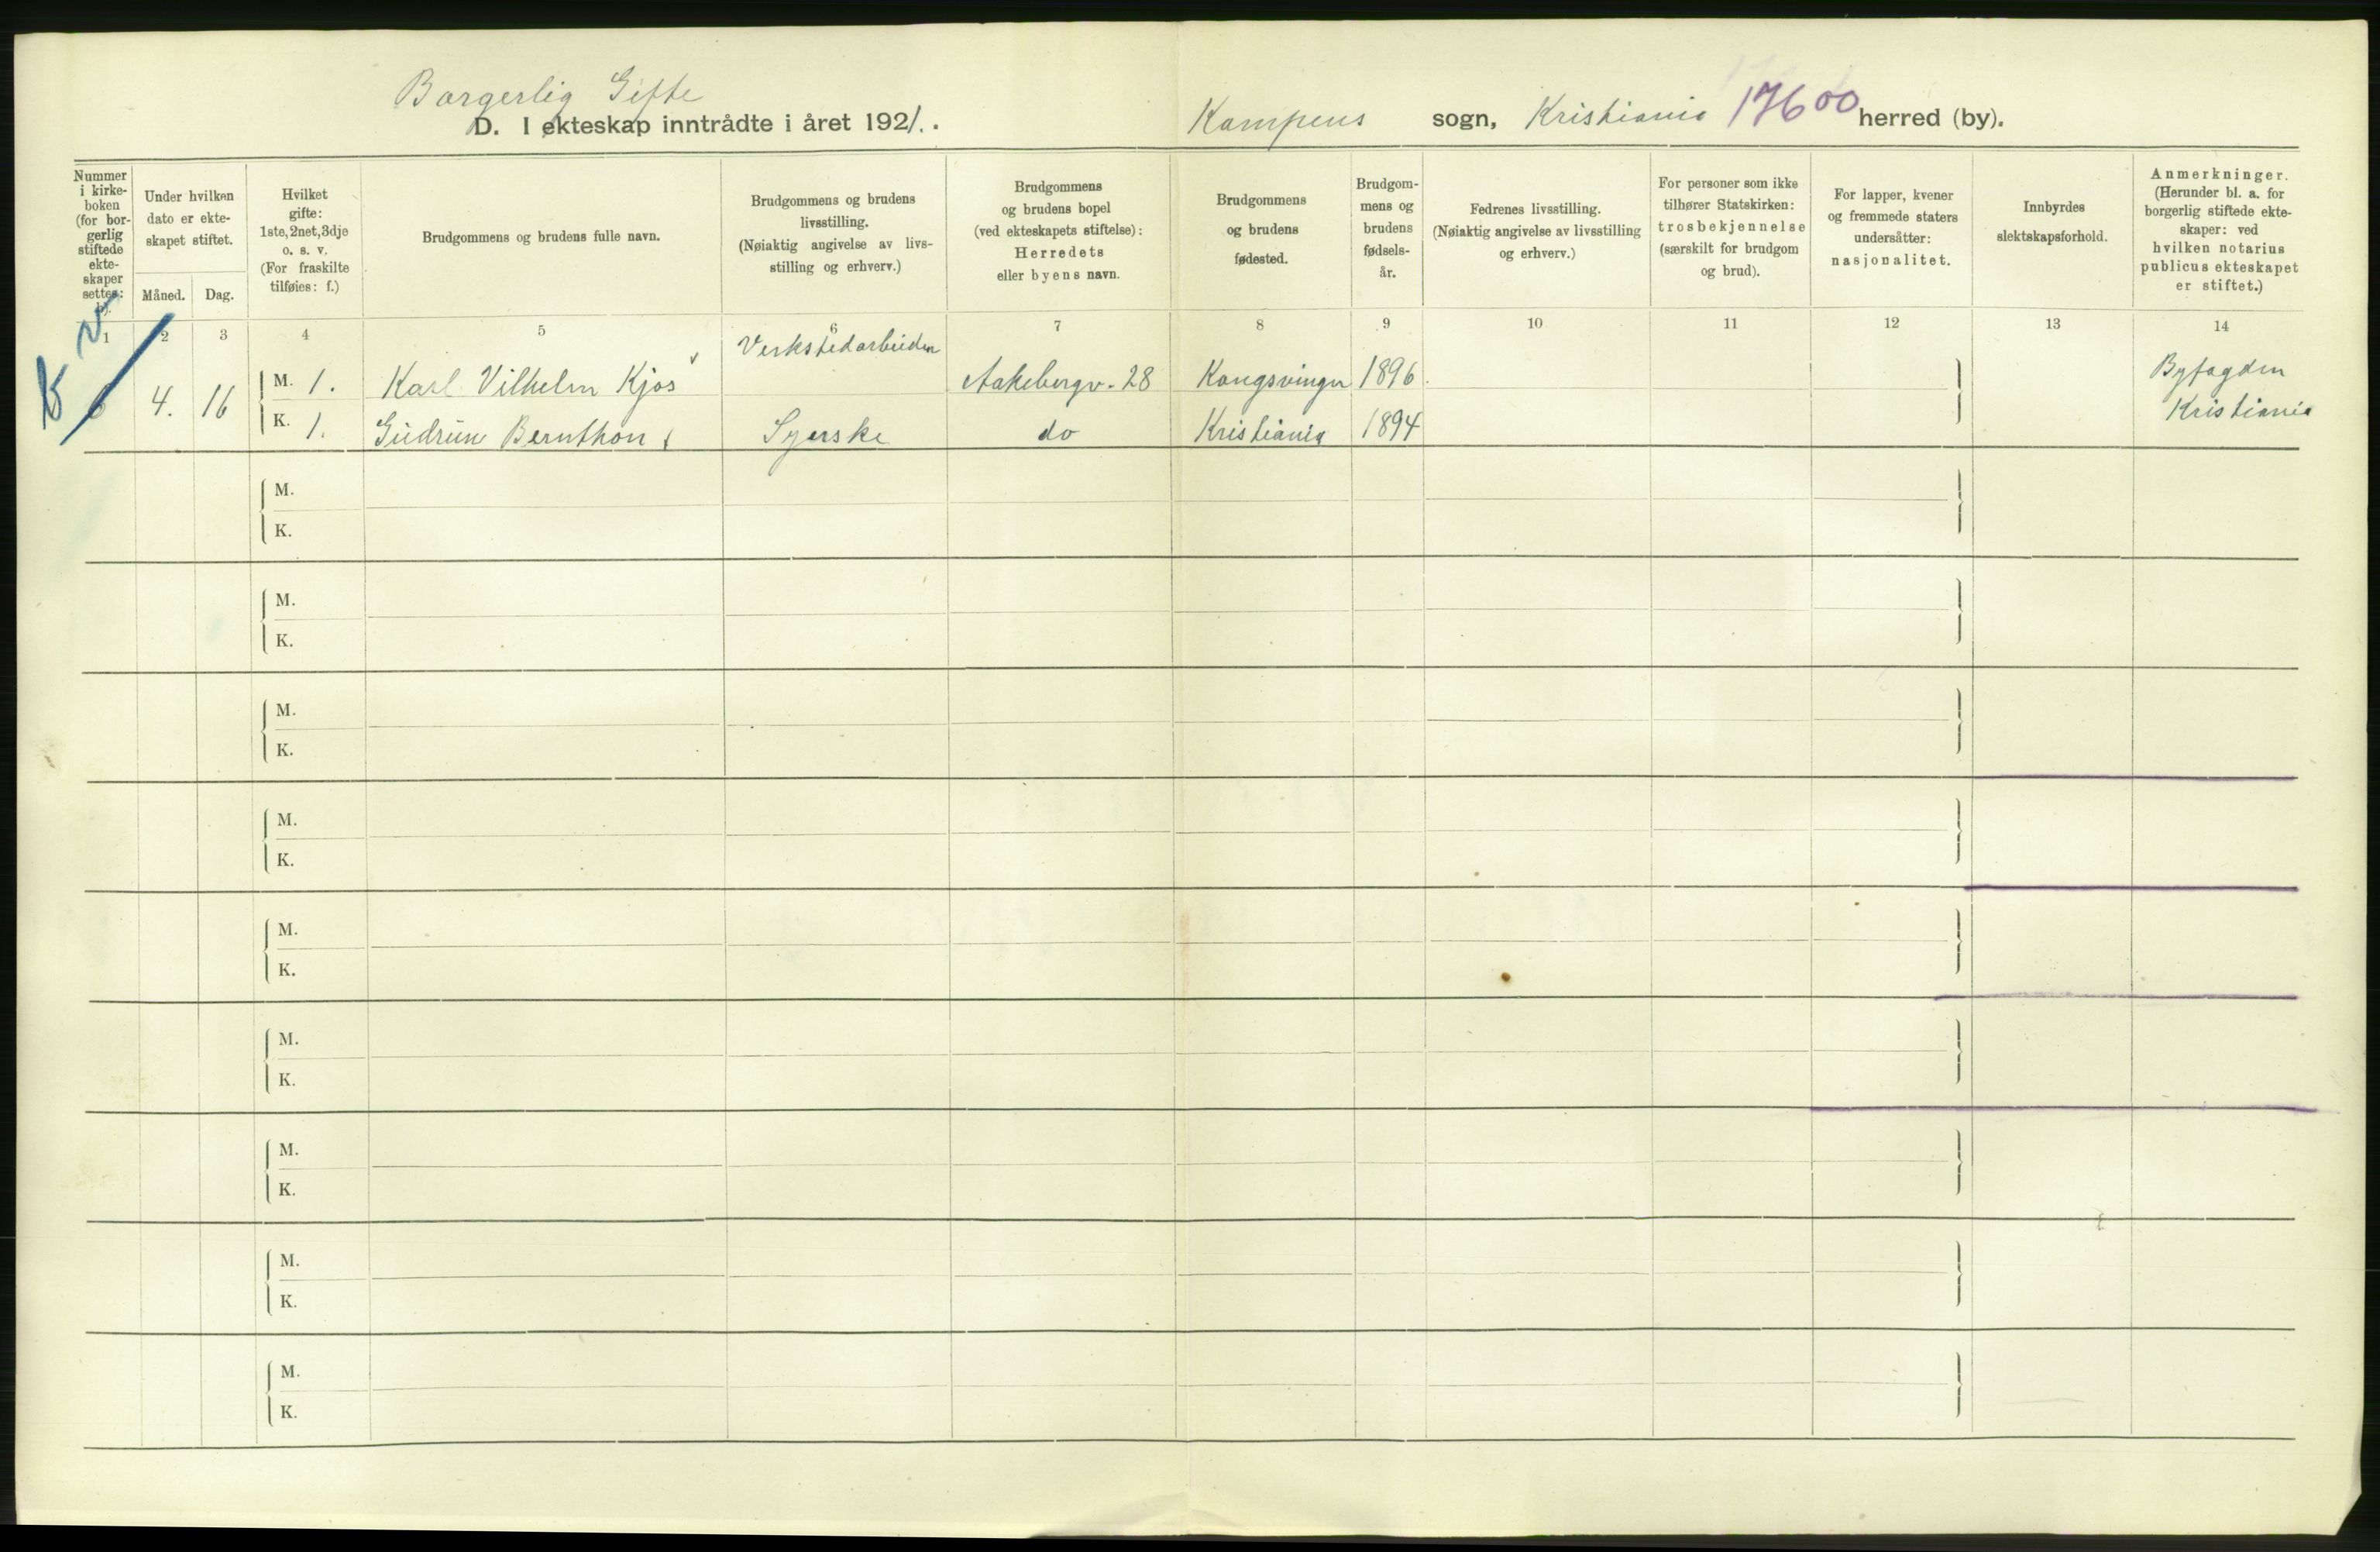 Borgerlig Gifte
D. I ekteskap inntrådte i året 1921.
Kampens sogn, Kristiania 17600 herred (by).
Nummer i kirke-boken (for bor-gerlig stiftede ekte-skaper settes: b).
Under hvilken dato er ekte-skapet stiftet.
Måned. Dag.
Hvilket gifte: 1ste, 2net, 3dje o. s. v. (For fraskilte tilføies: f.)
Brudgommens og brudens fulle navn.
Brudgommens og brudens livsstilling. (Nøiaktig angivelse av livs-stilling og erhverv.)
Brudgommens og brudens bopel (ved ekteskapets stiftelse): Herredets eller byens navn.
Brudgommens og brudens fødested.
Brudgom-mens og brudens fødsels-år.
Fedrenes livsstilling. (Nøiaktig angivelse av livsstilling og erhverv.)
For personer som ikke tilhører Statskirken: trosbekjennelse (særskilt for brudgom og brud).
For lapper, kvener og fremmede staters undersåtter: nasjonalitet.
Innbyrdes slektskapsforhold.
Anmerkninger. (Herunder bl. a. for borgerlig stiftede ekte-skaper: ved hvilken notarius publicus ekteskapet er stiftet.)
1 2 3 4 5 6 7 8 9 10 11 12 13 14
4. 16 M. 1. Karl Vilhelm Kjos Verkstedarbeider Aakebergv. 28 Kongsvinger 1896. Byfogden
K. 1. Gudrun Bernthon Syerske do Kristiania 1894 Kristiania
M.
K.
M.
K.
M.
K.
M.
K.
M.
K.
M.
K.
M.
K.
M.
K.
M.
K.